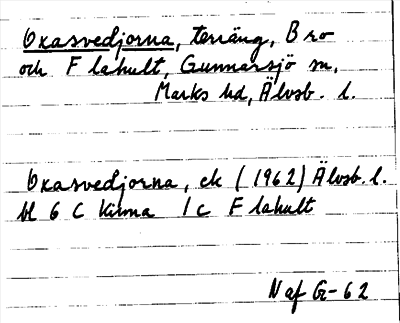 Oxasvedjorna, terräng, Bro
och Flahult, Gunnarsjö sn,
Marks hd, Älvsb. l.
Oxasvedjorna, ek (1962) Älvsb. l.
bl 6 C Kinna 1 c Flahult
N af G-62